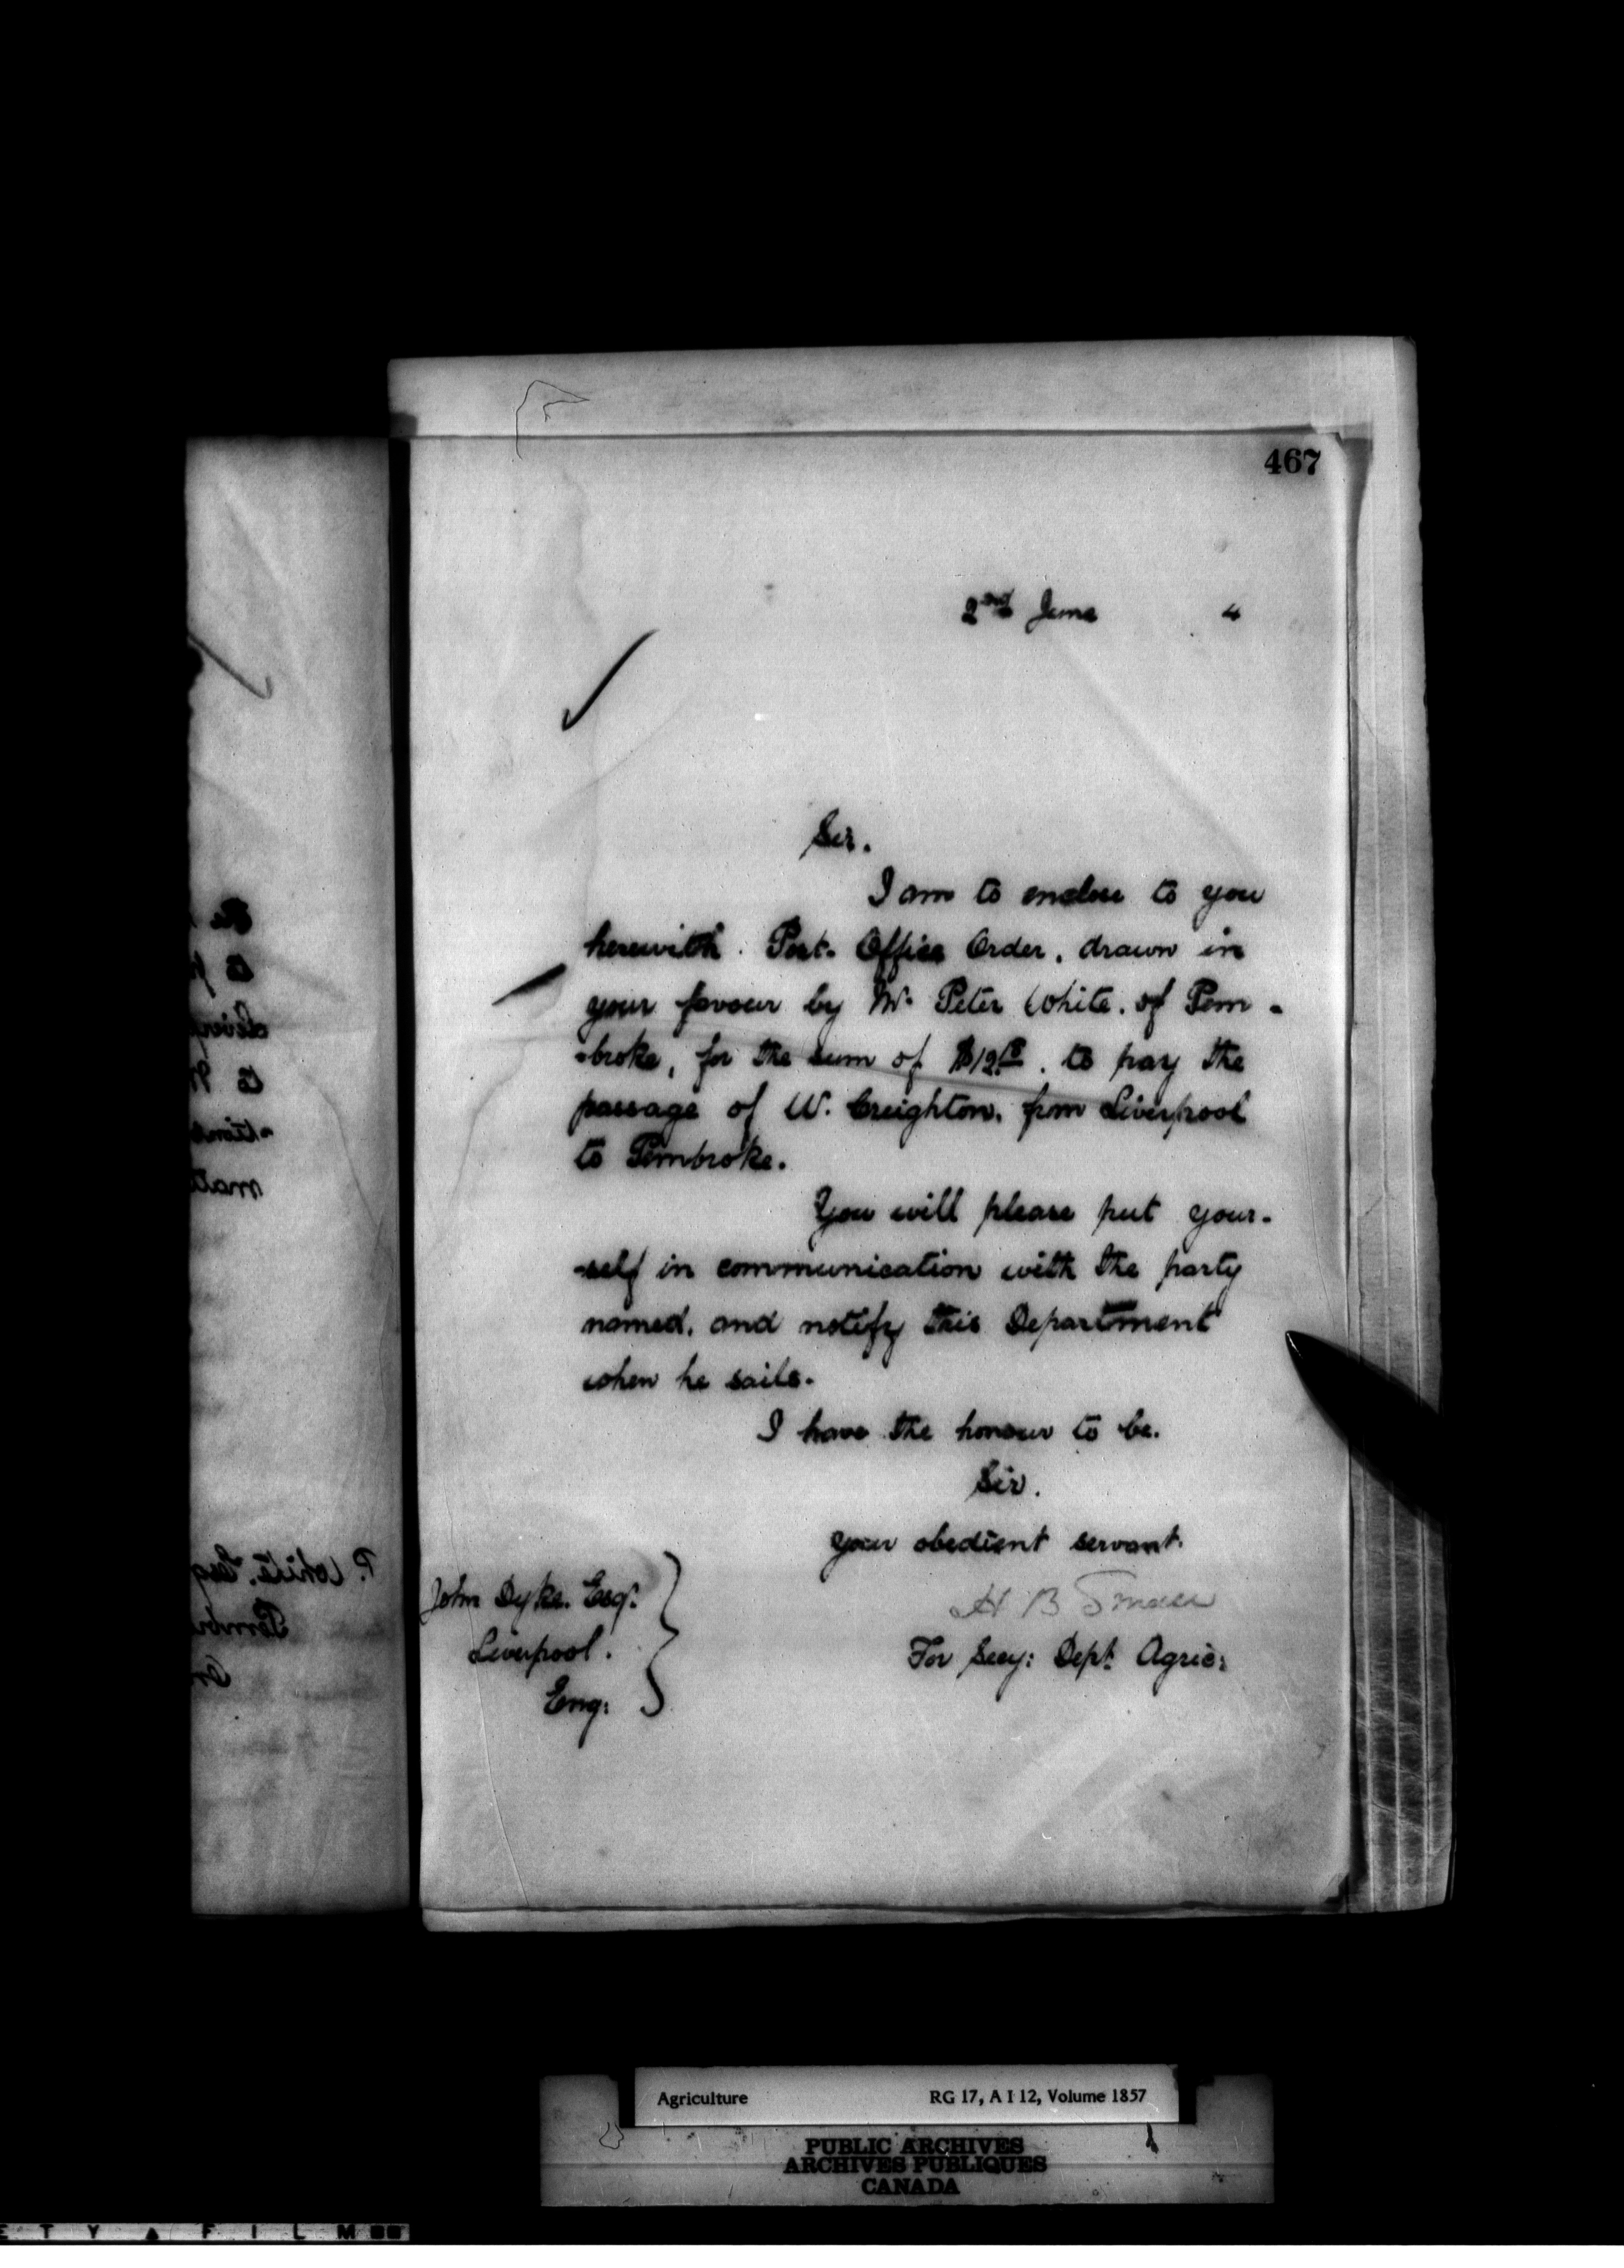 467
2nd June 4
Sir.
I am to enclose to you
herewith. Post. Office Order, drawn in
your favour by Mr. Peter White. of Pem-
-broke, for the sum of to pay the
passage of W. Creighton, from Liverpool
to Pembroke.
You will please put your-
-self in communication with the party
named, and notify this Department
when he sails.
I have the honour to be.
Sir.
your obedient servant.
H B Small
For Secy: Dept. Agric:
John Dyke. Esq:
Liverpool.
Eng:
P. White. Esq
Agriculture RG 17, A I 12, Volume 1857
PUBLIC ARCHIVES
ARCHIVES PUBLIQUES
CANADA
E T Y ▲ F I L M